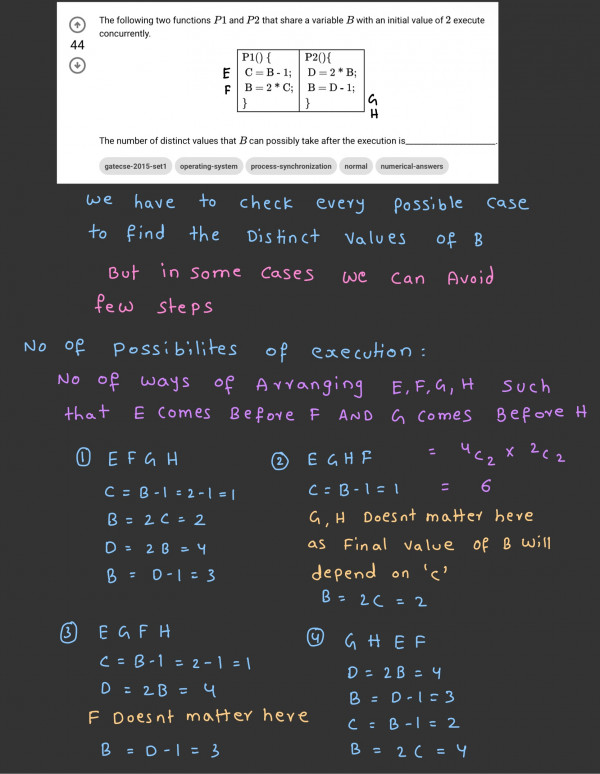 The following two functions P1 and P2 that share a variable B with an initial value of 2 execute
concurrently.
44
P1() {
P2(){
E
C = B - 1;
D = 2 * B;
F
B = 2 * C;
B = D - 1;
G
}
}
H
The number of distinct values that B can possibly take after the execution is______________.
gatecse-2015-set1 operating-system process-synchronization normal numerical-answers
we have to check every possible case
to find the Distinct values of B
But in some cases we can Avoid
few steps
No of possibilites of execution:
No of ways of Arranging E,F,G,H such
that E comes Before F AND G comes Before H
= 4C2 x 2C2
= 6
① E F G H
C = B-1 = 2-1 = 1
B = 2C = 2
D = 2B = 4
B = D-1 = 3
② E G H F
C = B-1 = 1
G, H Doesnt matter here
as Final value of B will
depend on 'c'
B = 2C = 2
③ E G F H
C = B-1 = 2-1 = 1
D = 2B = 4
F Doesnt matter here
B = D-1 = 3
④ G H E F
D = 2B = 4
B = D-1 = 3
C = B-1 = 2
B = 2C = 4